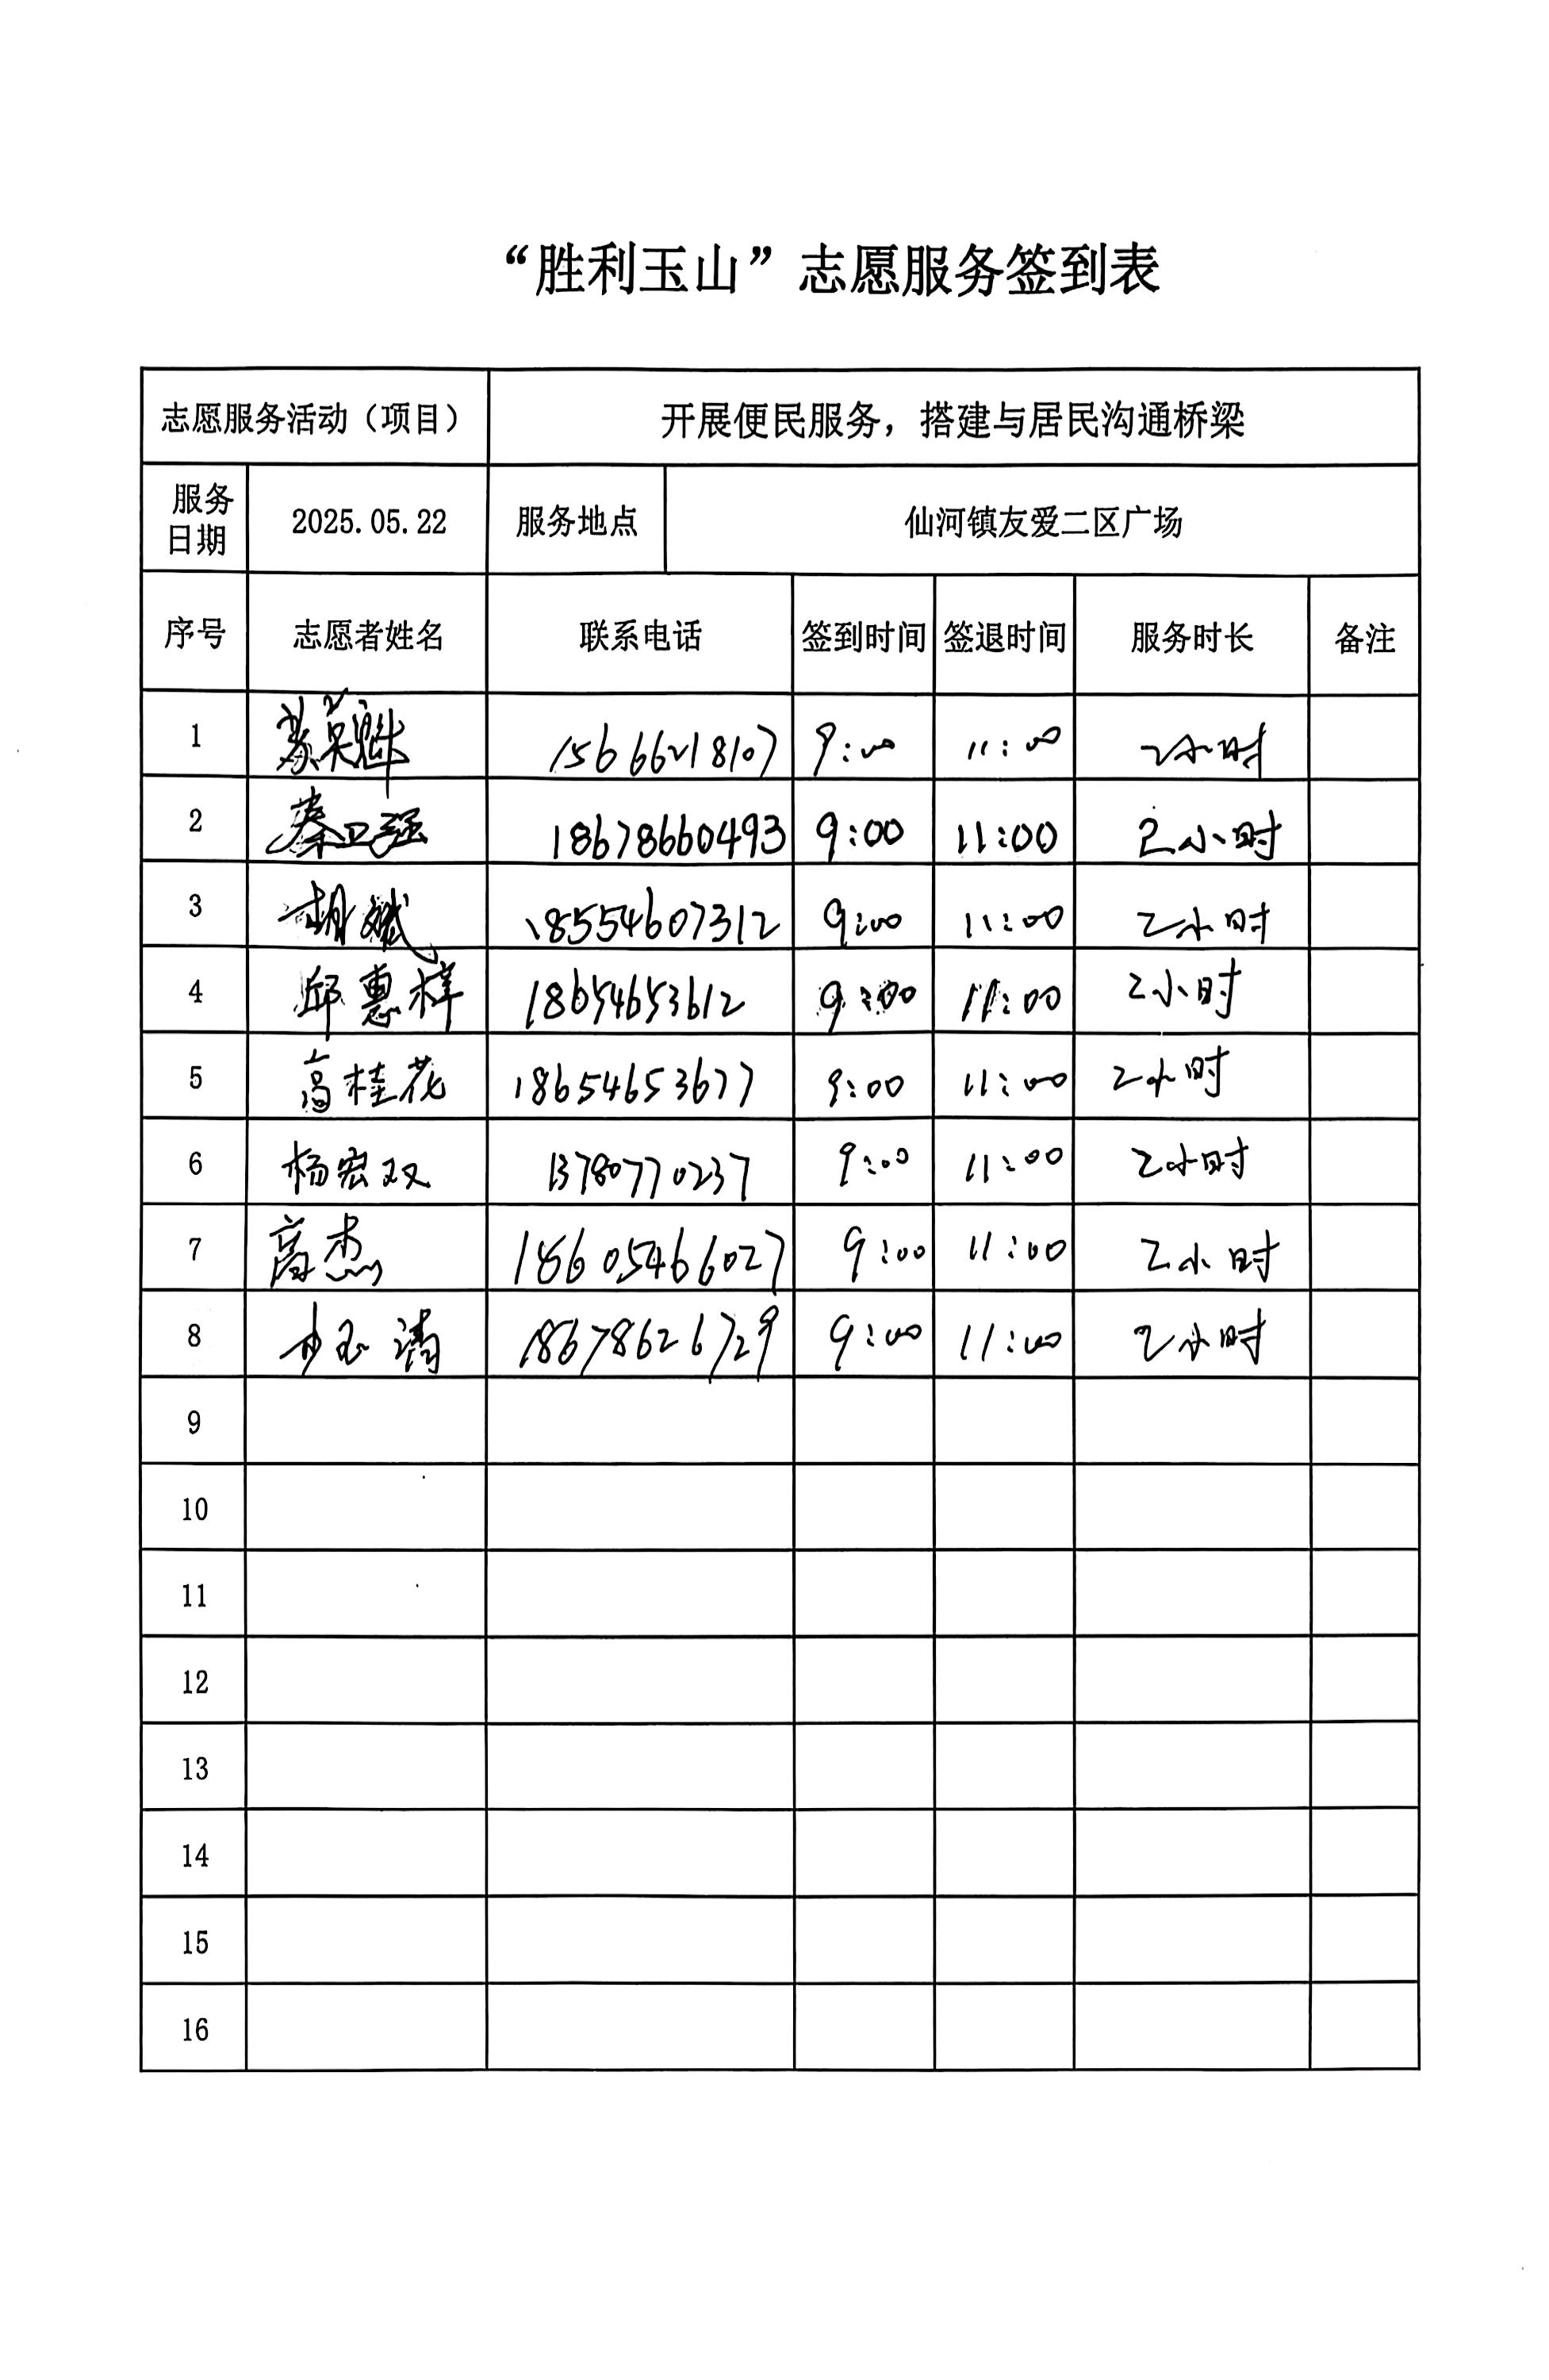 “胜利玉山”志愿服务签到表
志愿服务活动（项目） 开展便民服务，搭建与居民沟通桥梁
服务日期 2025.05.22 服务地点 仙河镇友爱二区广场
序号 志愿者姓名 联系电话 签到时间 签退时间 服务时长 备注
1 15666218107 9:00 11:00 2小时
2 秦卫强 18678660493 9:00 11:00 2小时
3 胡斌 18554607312 9:00 11:00 2小时
4 邱惠梓 18654653612 9:00 11:00 2小时
5 高桂花 18654653677 9:00 11:00 2小时
6 杨宏双 13780770237 9:00 11:00 2小时
7 高杰 18605466027 9:00 11:00 2小时
8 18678626729 9:00 11:00 2小时
9
10
11
12
13
14
15
16